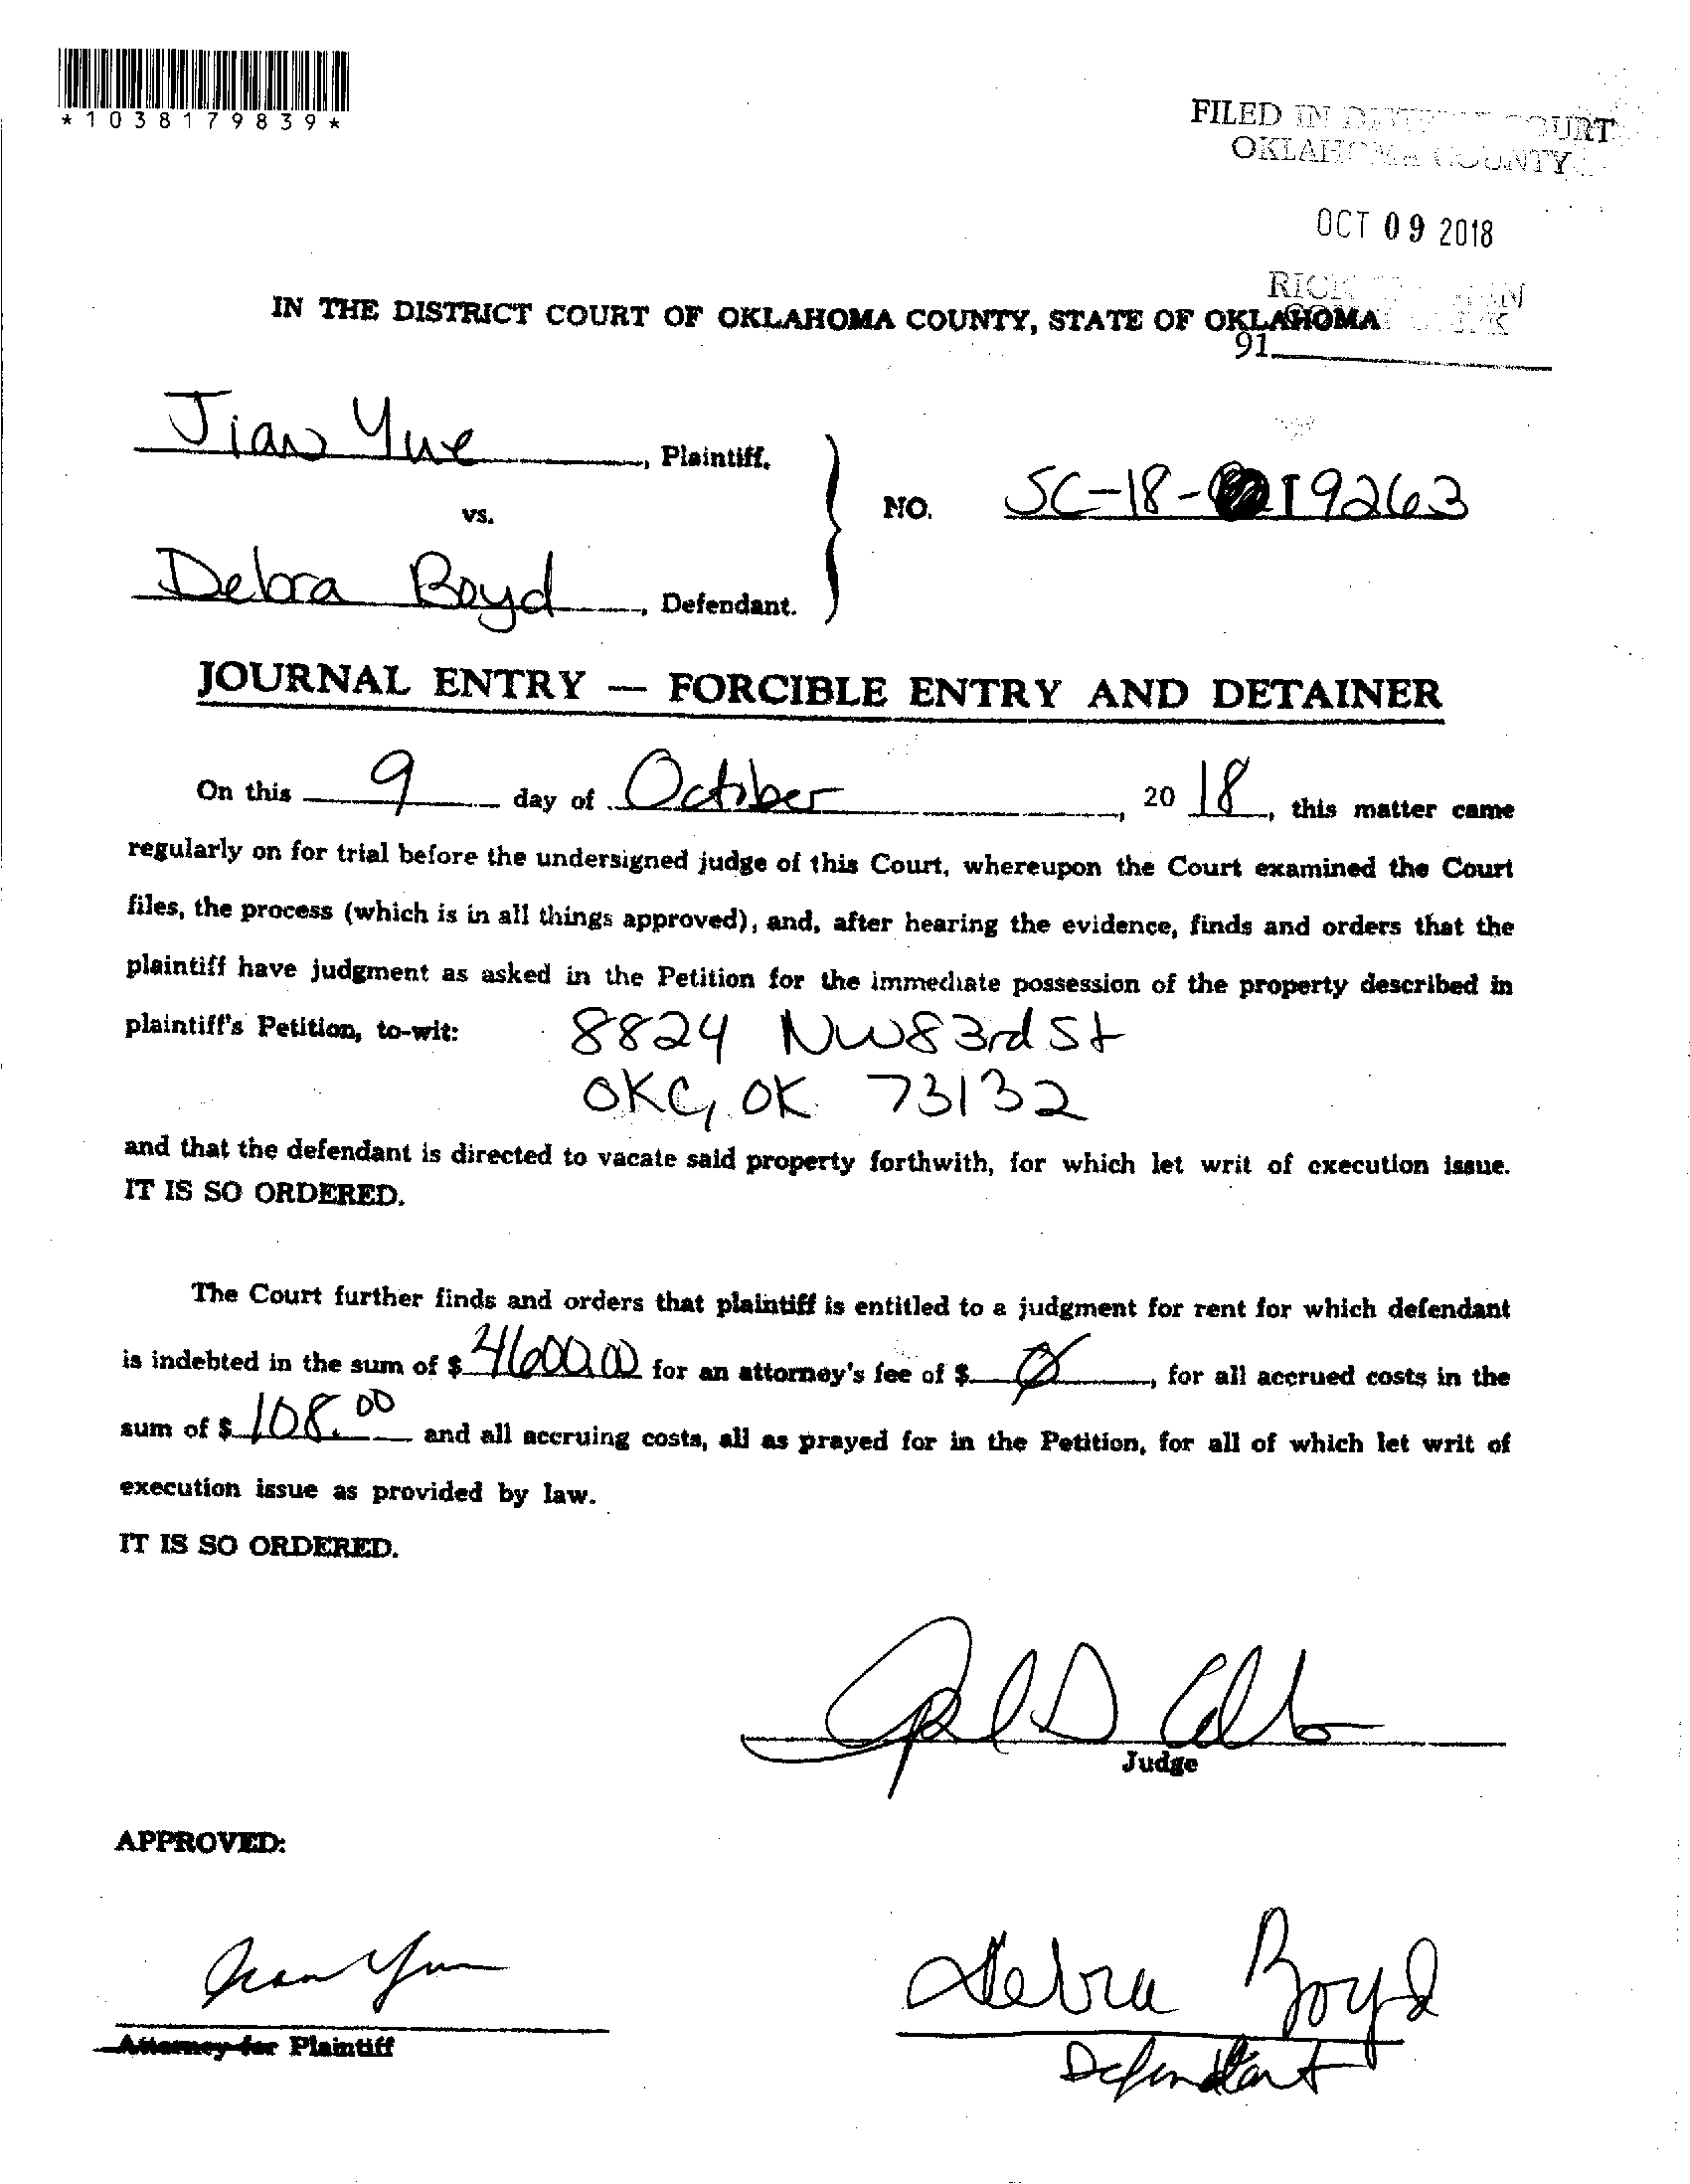 *1038179839*
FILED IN COURT
OKLAHOMA COUNTY
OCT 09 2018
IN THE DISTRICT COURT OF OKLAHOMA COUNTY, STATE OF OKLAHOMA
91
Jian Yue, Plaintiff,
vs.
NO. SC-18-19263
Debra Boyd, Defendant.
JOURNAL ENTRY — FORCIBLE ENTRY AND DETAINER
On this 9 day of October, 20 18, this matter came
regularly on for trial before the undersigned judge of this Court, whereupon the Court examined the Court
files, the process (which is in all things approved), and, after hearing the evidence, finds and orders that the
plaintiff have judgment as asked in the Petition for the immediate possession of the property described in
plaintiff's Petition, to-wit: 8824 NW 83rd St
OKC, OK 73132
and that the defendant is directed to vacate said property forthwith, for which let writ of execution issue.
IT IS SO ORDERED.
The Court further finds and orders that plaintiff is entitled to a judgment for rent for which defendant
is indebted in the sum of $ 4600.00 for an attorney's fee of $ 0, for all accrued costs in the
sum of $ 108.00 and all accruing costs, all as prayed for in the Petition, for all of which let writ of
execution issue as provided by law.
IT IS SO ORDERED.
Judge
APPROVED:
Jian Yue Debra Boyd
Attorney for Plaintiff
Defendant